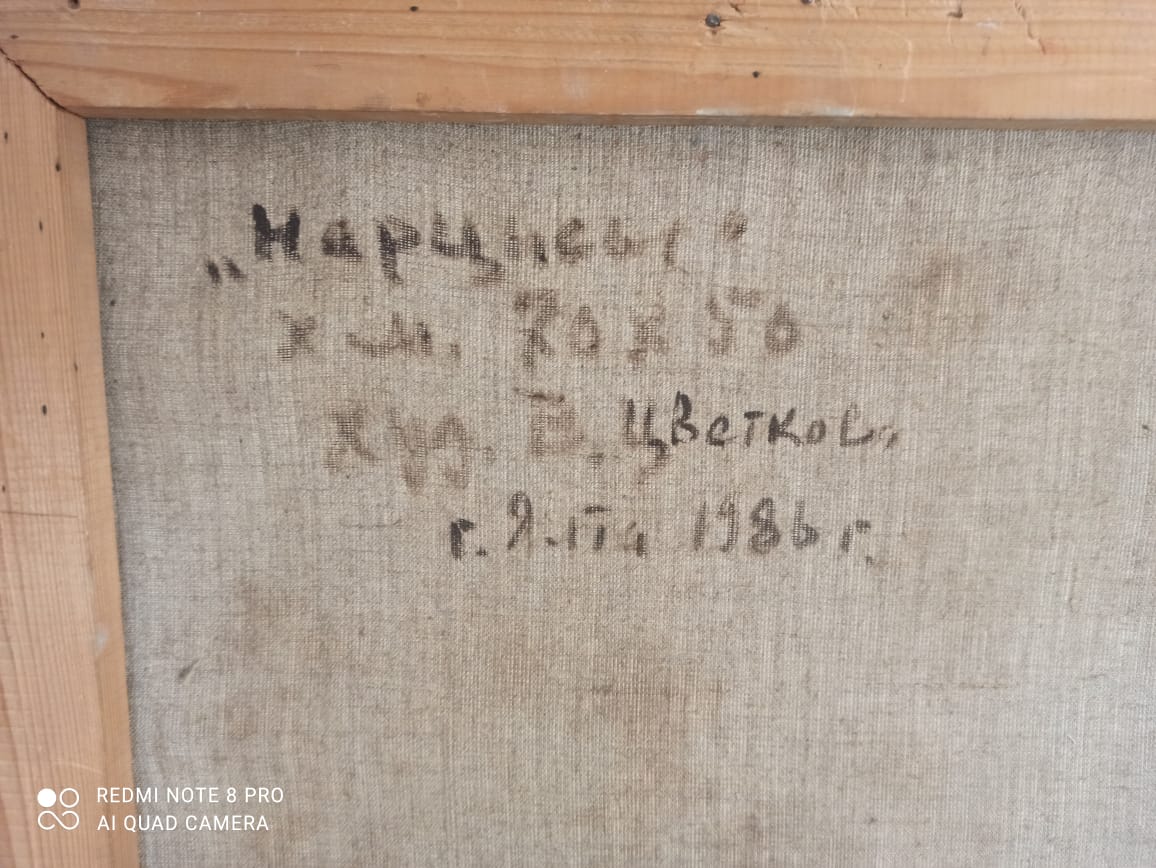 „Нарциссы“
х.м. 70х50
худ. В. Цветкова
г. Ялта 1986 г.
REDMI NOTE 8 PRO
AI QUAD CAMERA